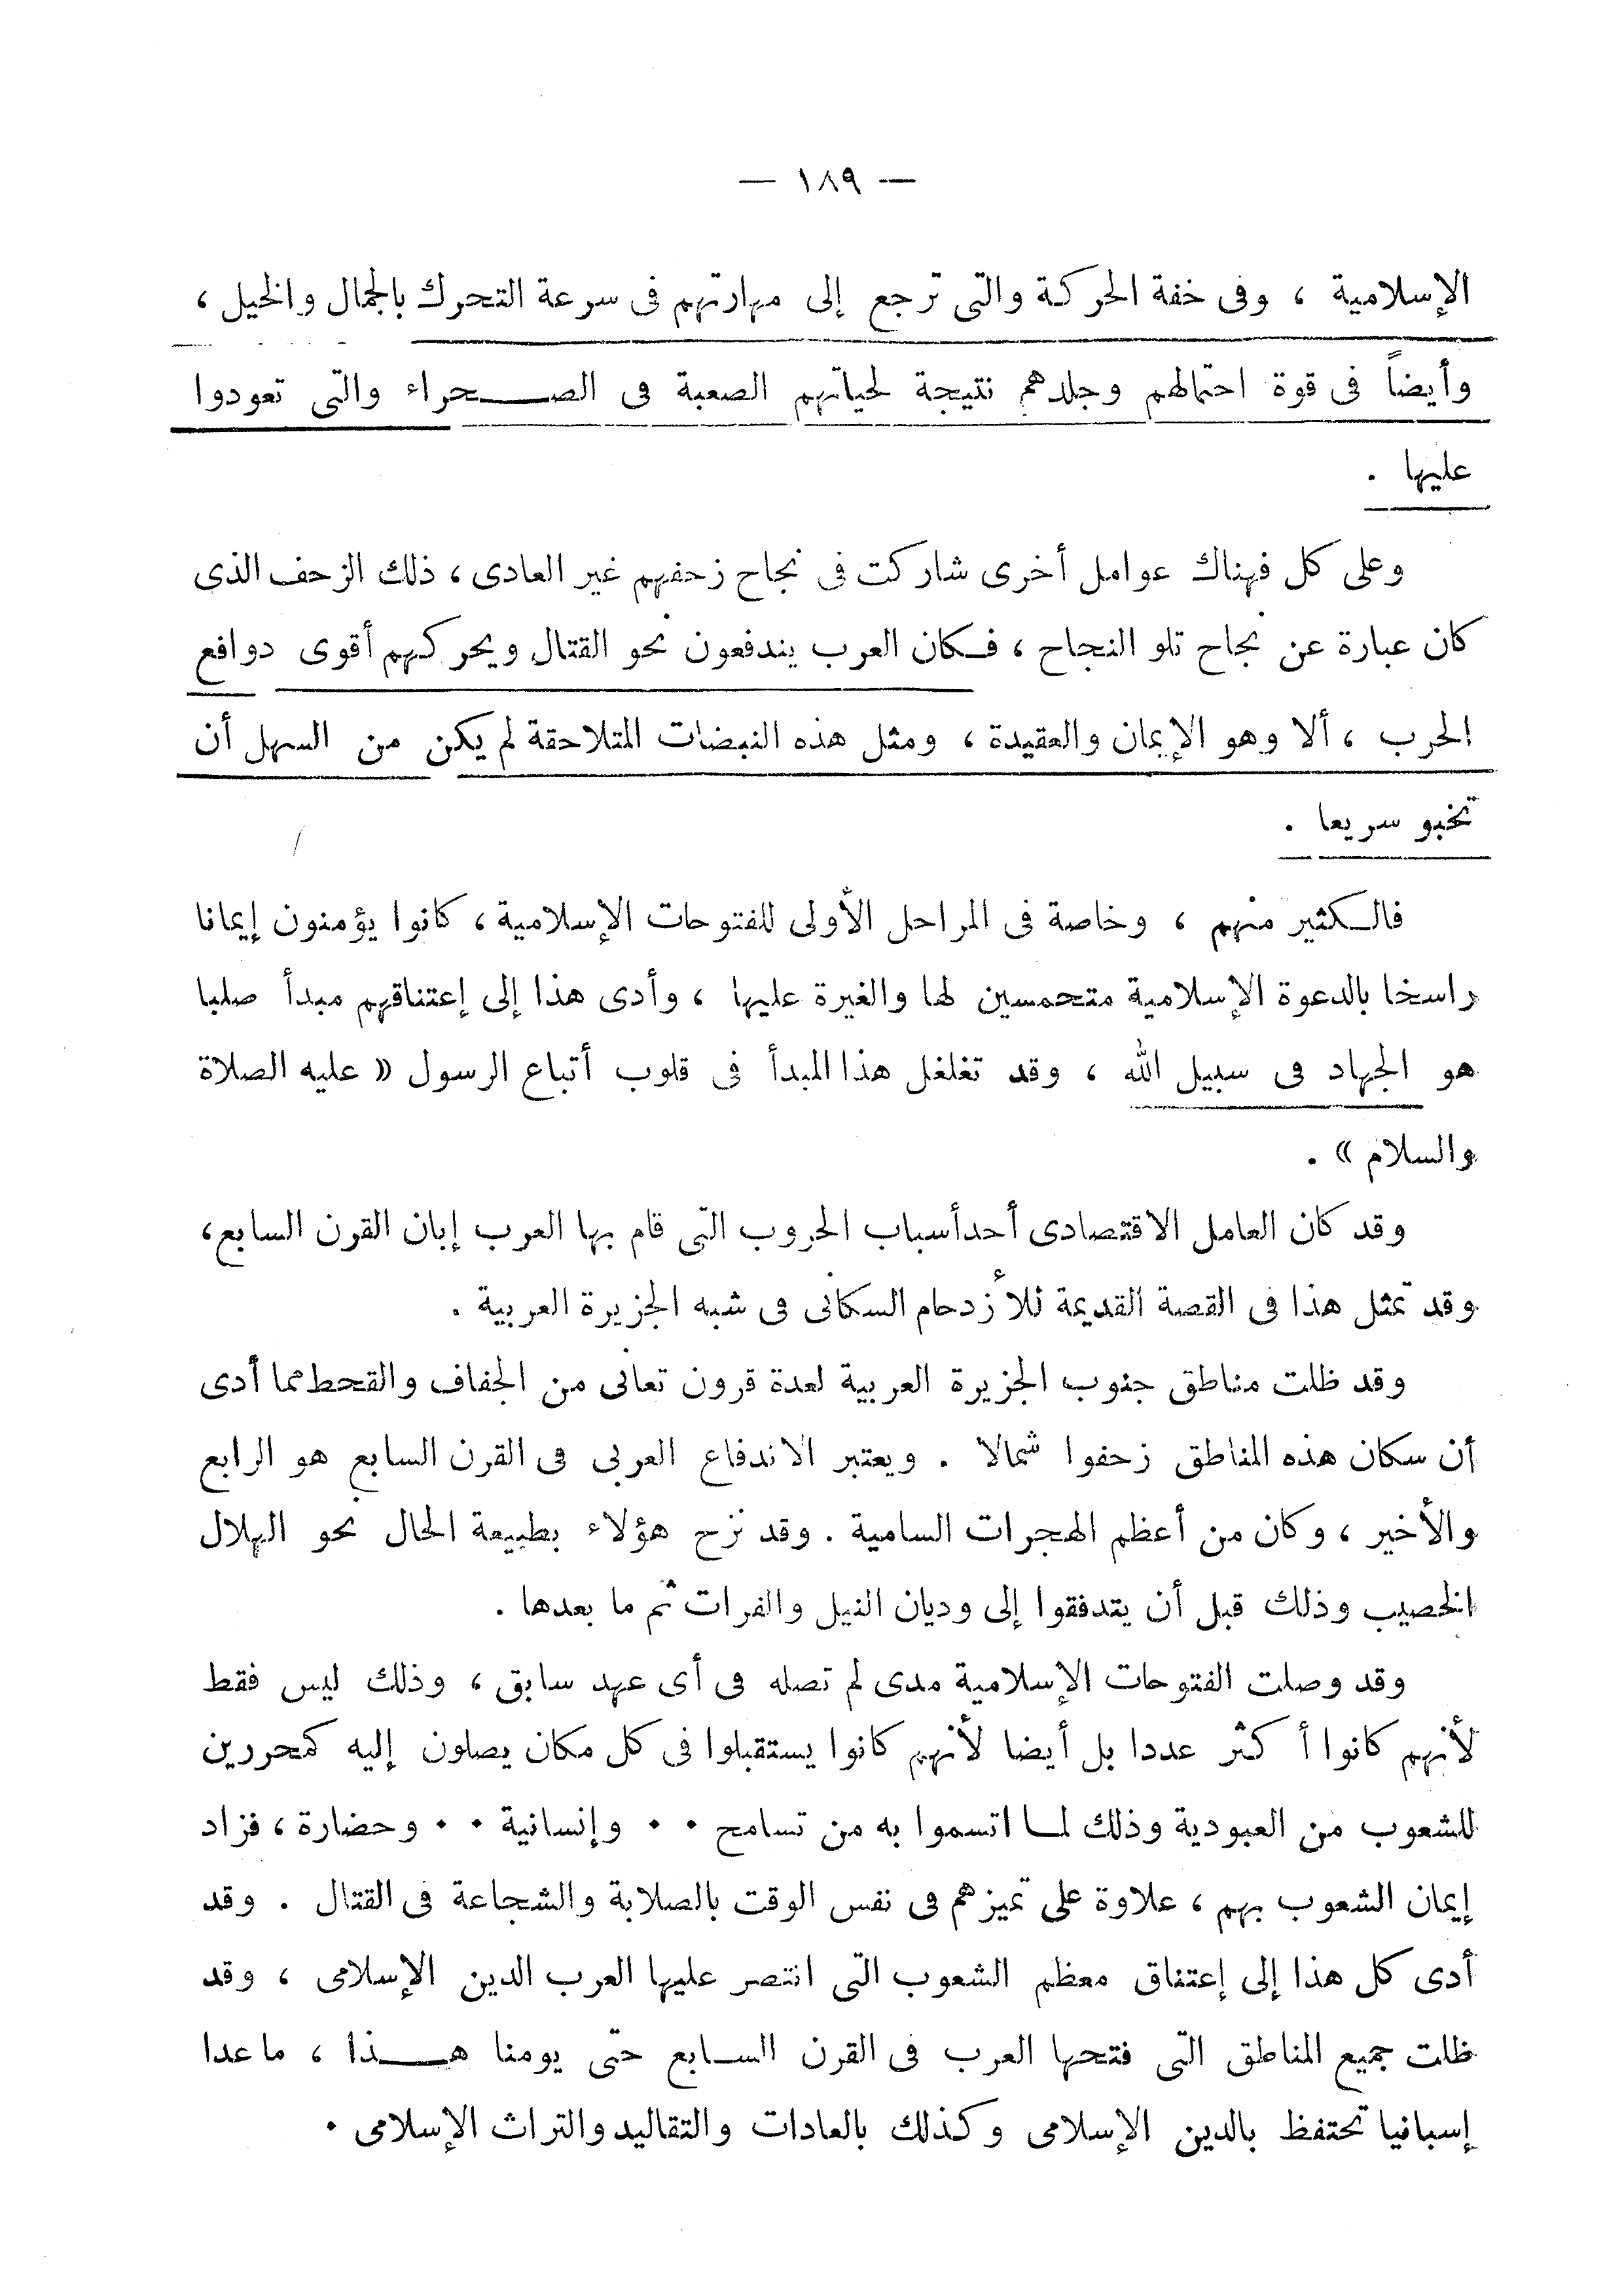 — ١٨٩ —
الإسلامية ، وفى خفة الحركة والتى ترجع إلى مهارتهم فى سرعة التحرك بالجمال والخيل ،
وأيضاً فى قوة احتمالهم وجلدهم نتيجة لحياتهم الصعبة فى الصحراء والتى تعودوا
عليها .
وعلى كل فهناك عوامل أخرى شاركت فى نجاح زحفهم غير العادى ، ذلك الزحف الذى
كان عبارة عن نجاح تلو النجاح ، فكان العرب يندفعون نحو القتال ويحركهم أقوى دوافع
الحرب ، ألا وهو الإيمان والعقيدة ، ومثل هذه النبضات المتلاحقة لم يكن من السهل أن
تخبو سريعا .
فالكثير منهم ، وخاصة فى المراحل الأولى للفتوحات الإسلامية ، كانوا يؤمنون إيمانا
راسخا بالدعوة الإسلامية متحمسين لها والغيرة عليها ، وأدى هذا إلى إعتناقهم مبدأ صلبا
هو الجهاد فى سبيل الله ، وقد تغلغل هذا المبدأ فى قلوب أتباع الرسول « عليه الصلاة
والسلام » .
وقد كان العامل الاقتصادى أحد أسباب الحروب التى قام بها العرب إبان القرن السابع ،
وقد تمثل هذا فى القصة القديمة للأزدحام السكانى فى شبه الجزيرة العربية .
وقد ظلت مناطق جنوب الجزيرة العربية لعدة قرون تعانى من الجفاف والقحط مما أدى
أن سكان هذه المناطق زحفوا شمالا . ويعتبر الاندفاع العربى فى القرن السابع هو الرابع
والأخير ، وكان من أعظم الهجرات السامية . وقد نزح هؤلاء بطبيعة الحال نحو الهلال
الخصيب وذلك قبل أن يتدفقوا إلى وديان النيل والفرات ثم ما بعدها .
وقد وصلت الفتوحات الإسلامية مدى لم تصله فى أى عهد سابق ، وذلك ليس فقط
لأنهم كانوا أكثر عددا بل أيضا لأنهم كانوا يستقبلوا فى كل مكان يصلون إليه كمحررين
للشعوب من العبودية وذلك لما اتسموا به من تسامح . . وإنسانية . . وحضارة ، فزاد
إيمان الشعوب بهم ، علاوة على تميزهم فى نفس الوقت بالصلابة والشجاعة فى القتال . وقد
أدى كل هذا إلى إعتفاق معظم الشعوب التى انتصر عليها العرب الدين الإسلامى ، وقد
ظلت جميع المناطق التى فتحها العرب فى القرن السابع حتى يومنا هذا ، ما عدا
إسبانيا تحتفظ بالدين الإسلامى وكذلك بالعادات والتقاليد والتراث الإسلامى .